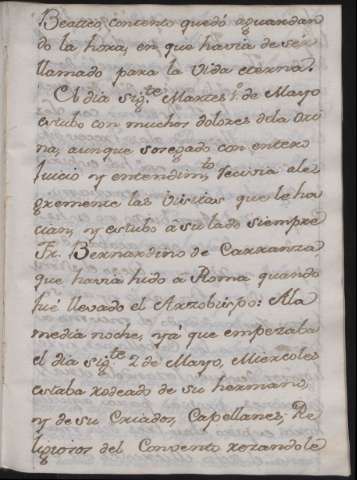 Beatico contento quedó aguardan
do la hora, en que havia de ser
llamado para la vida eterna.
El dia sig.te Martes 1.º de Mayo
estubo con muchos dolores dela Ori
na, aunque sosegado con entero
Juicio y entendim.to recivia ale
gremente las visitas que le ha
cian, y estubo à su lado siempre
Fr. Bernardino de Carranza,
que havia hido à Roma quando
fué llevado el Arzobispo: Ala
media noche, yá que empezaba
el dia sig.te 2 de Mayo, Miercoles
estaba rodeado de su hermano,
y de sus Criados, Capellanes, Re
ligiosos del Convento rezandole